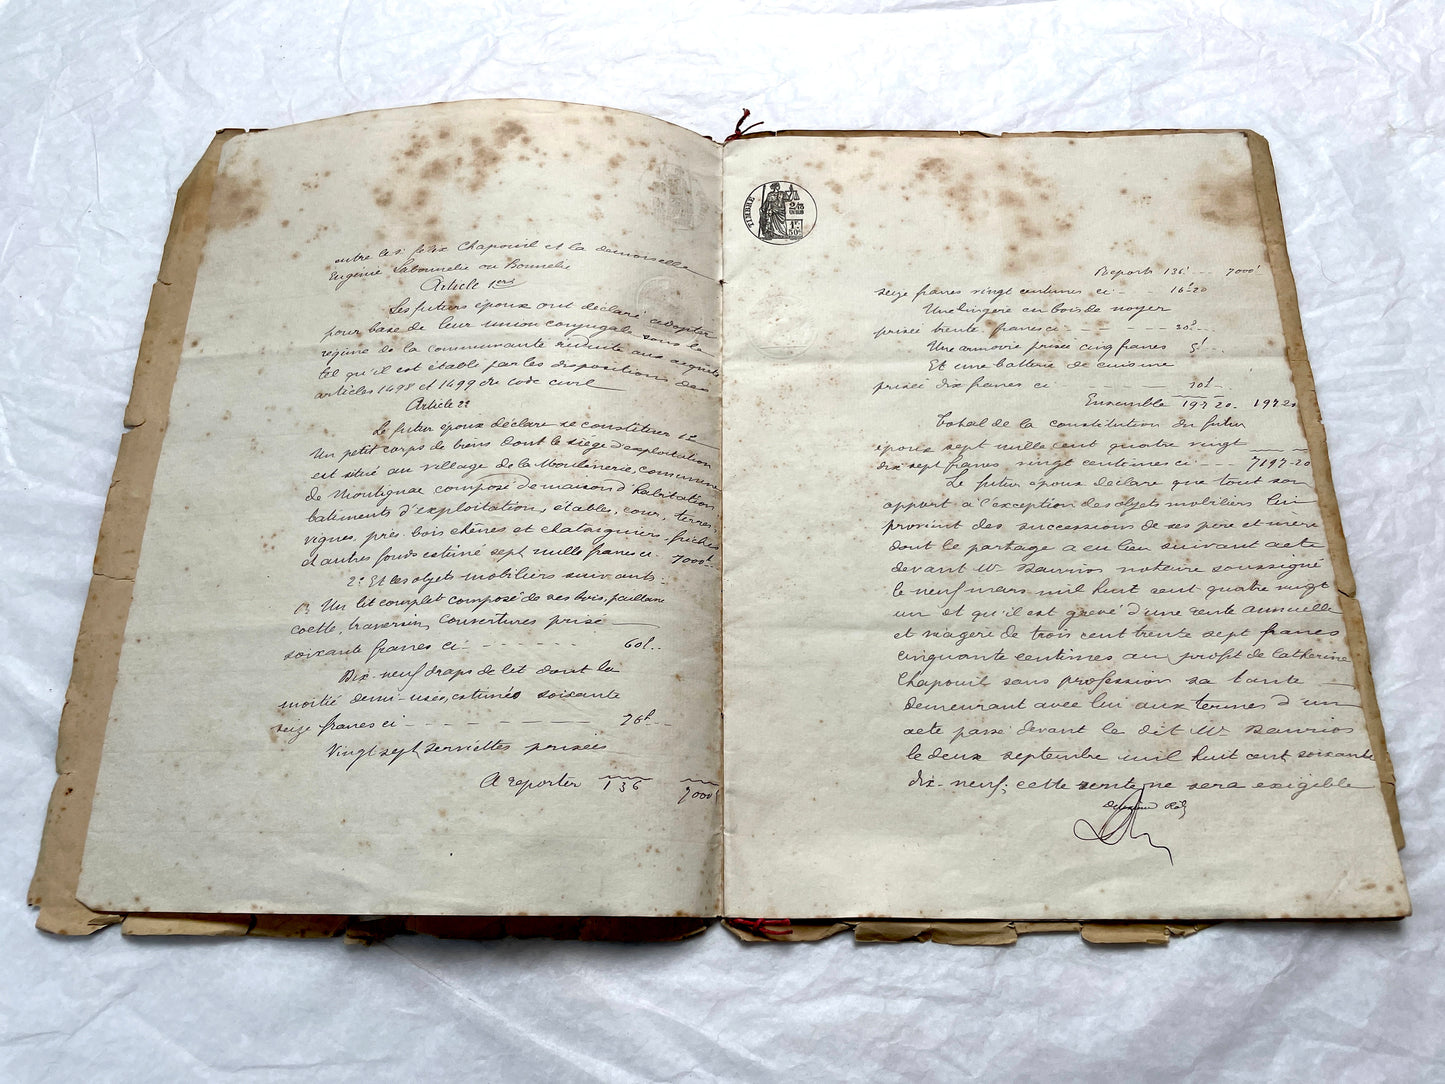 entre les sr félix Chapouil et la demoiselle
Eugénie Labonnelie ou Bonnelie
Article 1er
Les futurs époux ont déclaré adopter
pour base de leur union conjugale sous le
régime de la communauté réduite aux acquets
tel qu'il est établi par les dispositions des
articles 1498 et 1499 du code civil
Article 2e
Le futur époux déclare se constituer 1°
Un petit corps de biens dont le siège d'exploitation
est situé au village de la Moulinerie, commune
de Montignac composé de maison d'habitation,
batiments d'exploitation, étables, cour, terres,
vignes, près, bois chênes et chataigniers, friches
et autres fonds estimé sept mille francs ci. 7000f
2° Et les objets mobiliers suivants
Un lit complet composé de ses bois, paillasse
coette, traversin, couvertures prisé
soixante francs ci - - - - - - 60f..
Dix-neuf draps de lit dont la
moitié demi-usés, estimés soixante
seize francs ci - - - - - - - - 76f..
Vingt sept serviettes prisées
A reporter 136 7000f
TIMBRE
2/10
EN SUS
1F
50c
Report 136f - - - 7000f
seize francs vingt centimes ci - - 16f20
Une lingère en bois de noyer
prisée trente francs ci - - - - - - 30f...
Une armoire prisée cinq francs 5f...
Et une batterie de cuisine
prisée dix francs ci - - - - - - 10f..
Ensemble 197 20. 197 20
Total de la constitution du futur
époux sept mille cent quatre vingt
dix sept francs vingt centimes ci - - - 7197-20
Le futur époux déclare que tout son
apport à l'exception des objets mobiliers lui
provient des successions de ses père et mère
dont le partage a eu lieu suivant acte
devant Me notaire soussigné
le neuf mars mil huit cent quatre vingt
un et qu'il est grevé d'une rente annuelle
et viagère de trois cent trente sept francs
cinquante centimes au profit de Catherine
Chapouil sans profession sa tante
demeurant avec lui aux termes d'un
acte passé devant le dit Me
le deux septembre mil huit cent soixante
dix-neuf; cette rente ne sera exigible